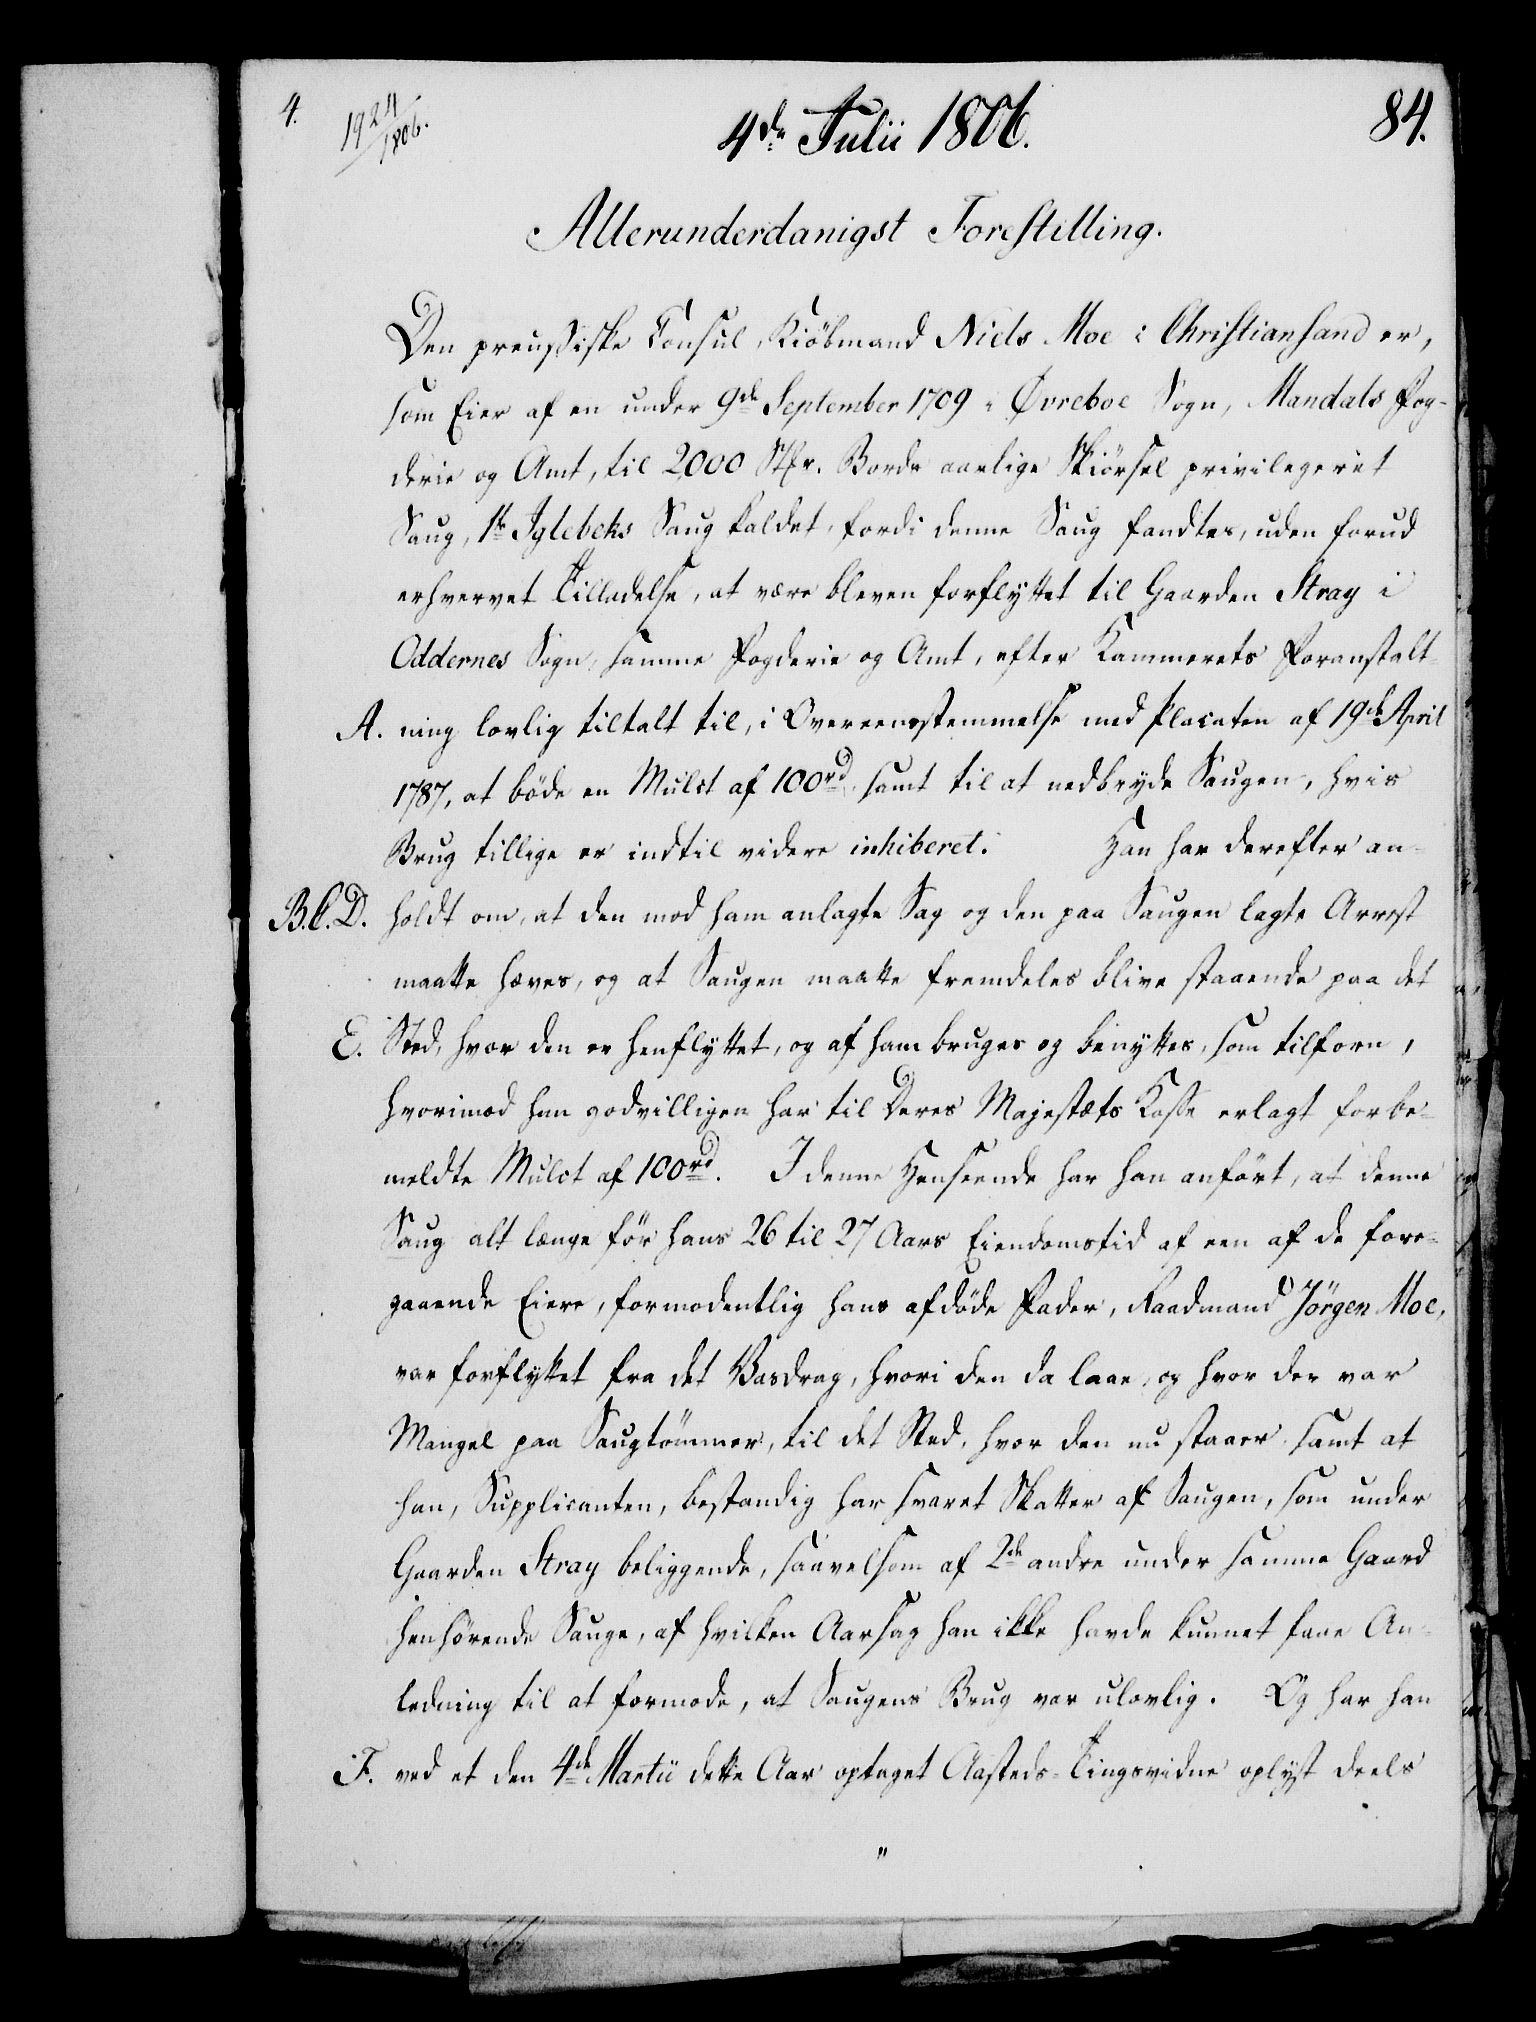 4.
1924/1806.
4de Julii 1806.
84.
Allerunderdanigst Forestilling.
Den preussiske Consul, Kiöbmand Niels Moe i Christiansand er,
som Eier af en under 9de September 1709 i Øvreboe Sogn, Mandals Fog-
derie og Amt, til 2000 Stkr. Bords aarlige Skiörsel privilegeret
Saug, 1te Iglebeks Saug kaldet, fordi denne Saug fandtes, uden forud
erhvervet Tilladelse, at være bleven forflyttet til Gaarden Stray i
Oddernes Sogn, samme Fogderie og Amt, efter Kammerets Foranstalt-
A. ning lovlig tiltalt til, i Overeensstemmelse med Placaten af 19de April
1787, at böde en Mulct af 100rd, samt til at nedbryde Saugen, hvis
Brug tillige er indtil videre inhiberet. Han har derefter an-
B.C.D. holdt om, at den mod ham anlagte Sag og den paa Saugen lagte Arrest
maatte hæves, og at Saugen maatte fremdeles blive staaende paa det
E. Sted, hvor den er henflyttet, og af ham bruges og benyttes, som tilforn,
hvorimod han godvilligen har til Deres Majestæts Kasse erlagt forbe-
meldte Mulct af 100rd. I denne Henseende har han anfört, at denne
Saug alt længe för hans 26 til 27 Aars Eiendomstid af een af de fore-
gaaende Eiere, formodentlig hans afdöde Fader, Raadmand Jörgen Moe,
var forflyttet fra det Vasdrag, hvori den da laae, og hvor der var
Mangel paa Saugtömmer, til det Sted, hvor den nu staaer samt at
han, Supplicanten, bestandig har svaret Skatter af Saugen, som under
Gaarden Stray beliggende, saavelsom af 2de andre under samme Gaard
henhörende Sauge, af hvilken Aarsag han ikke havde kunnet faae An-
ledning til at formode, at Saugens Brug var ulovlig. Og har han
F. ved et den 4de Martii dette Aar optaget Aasteds-Tingsvidne oplyst deels
"